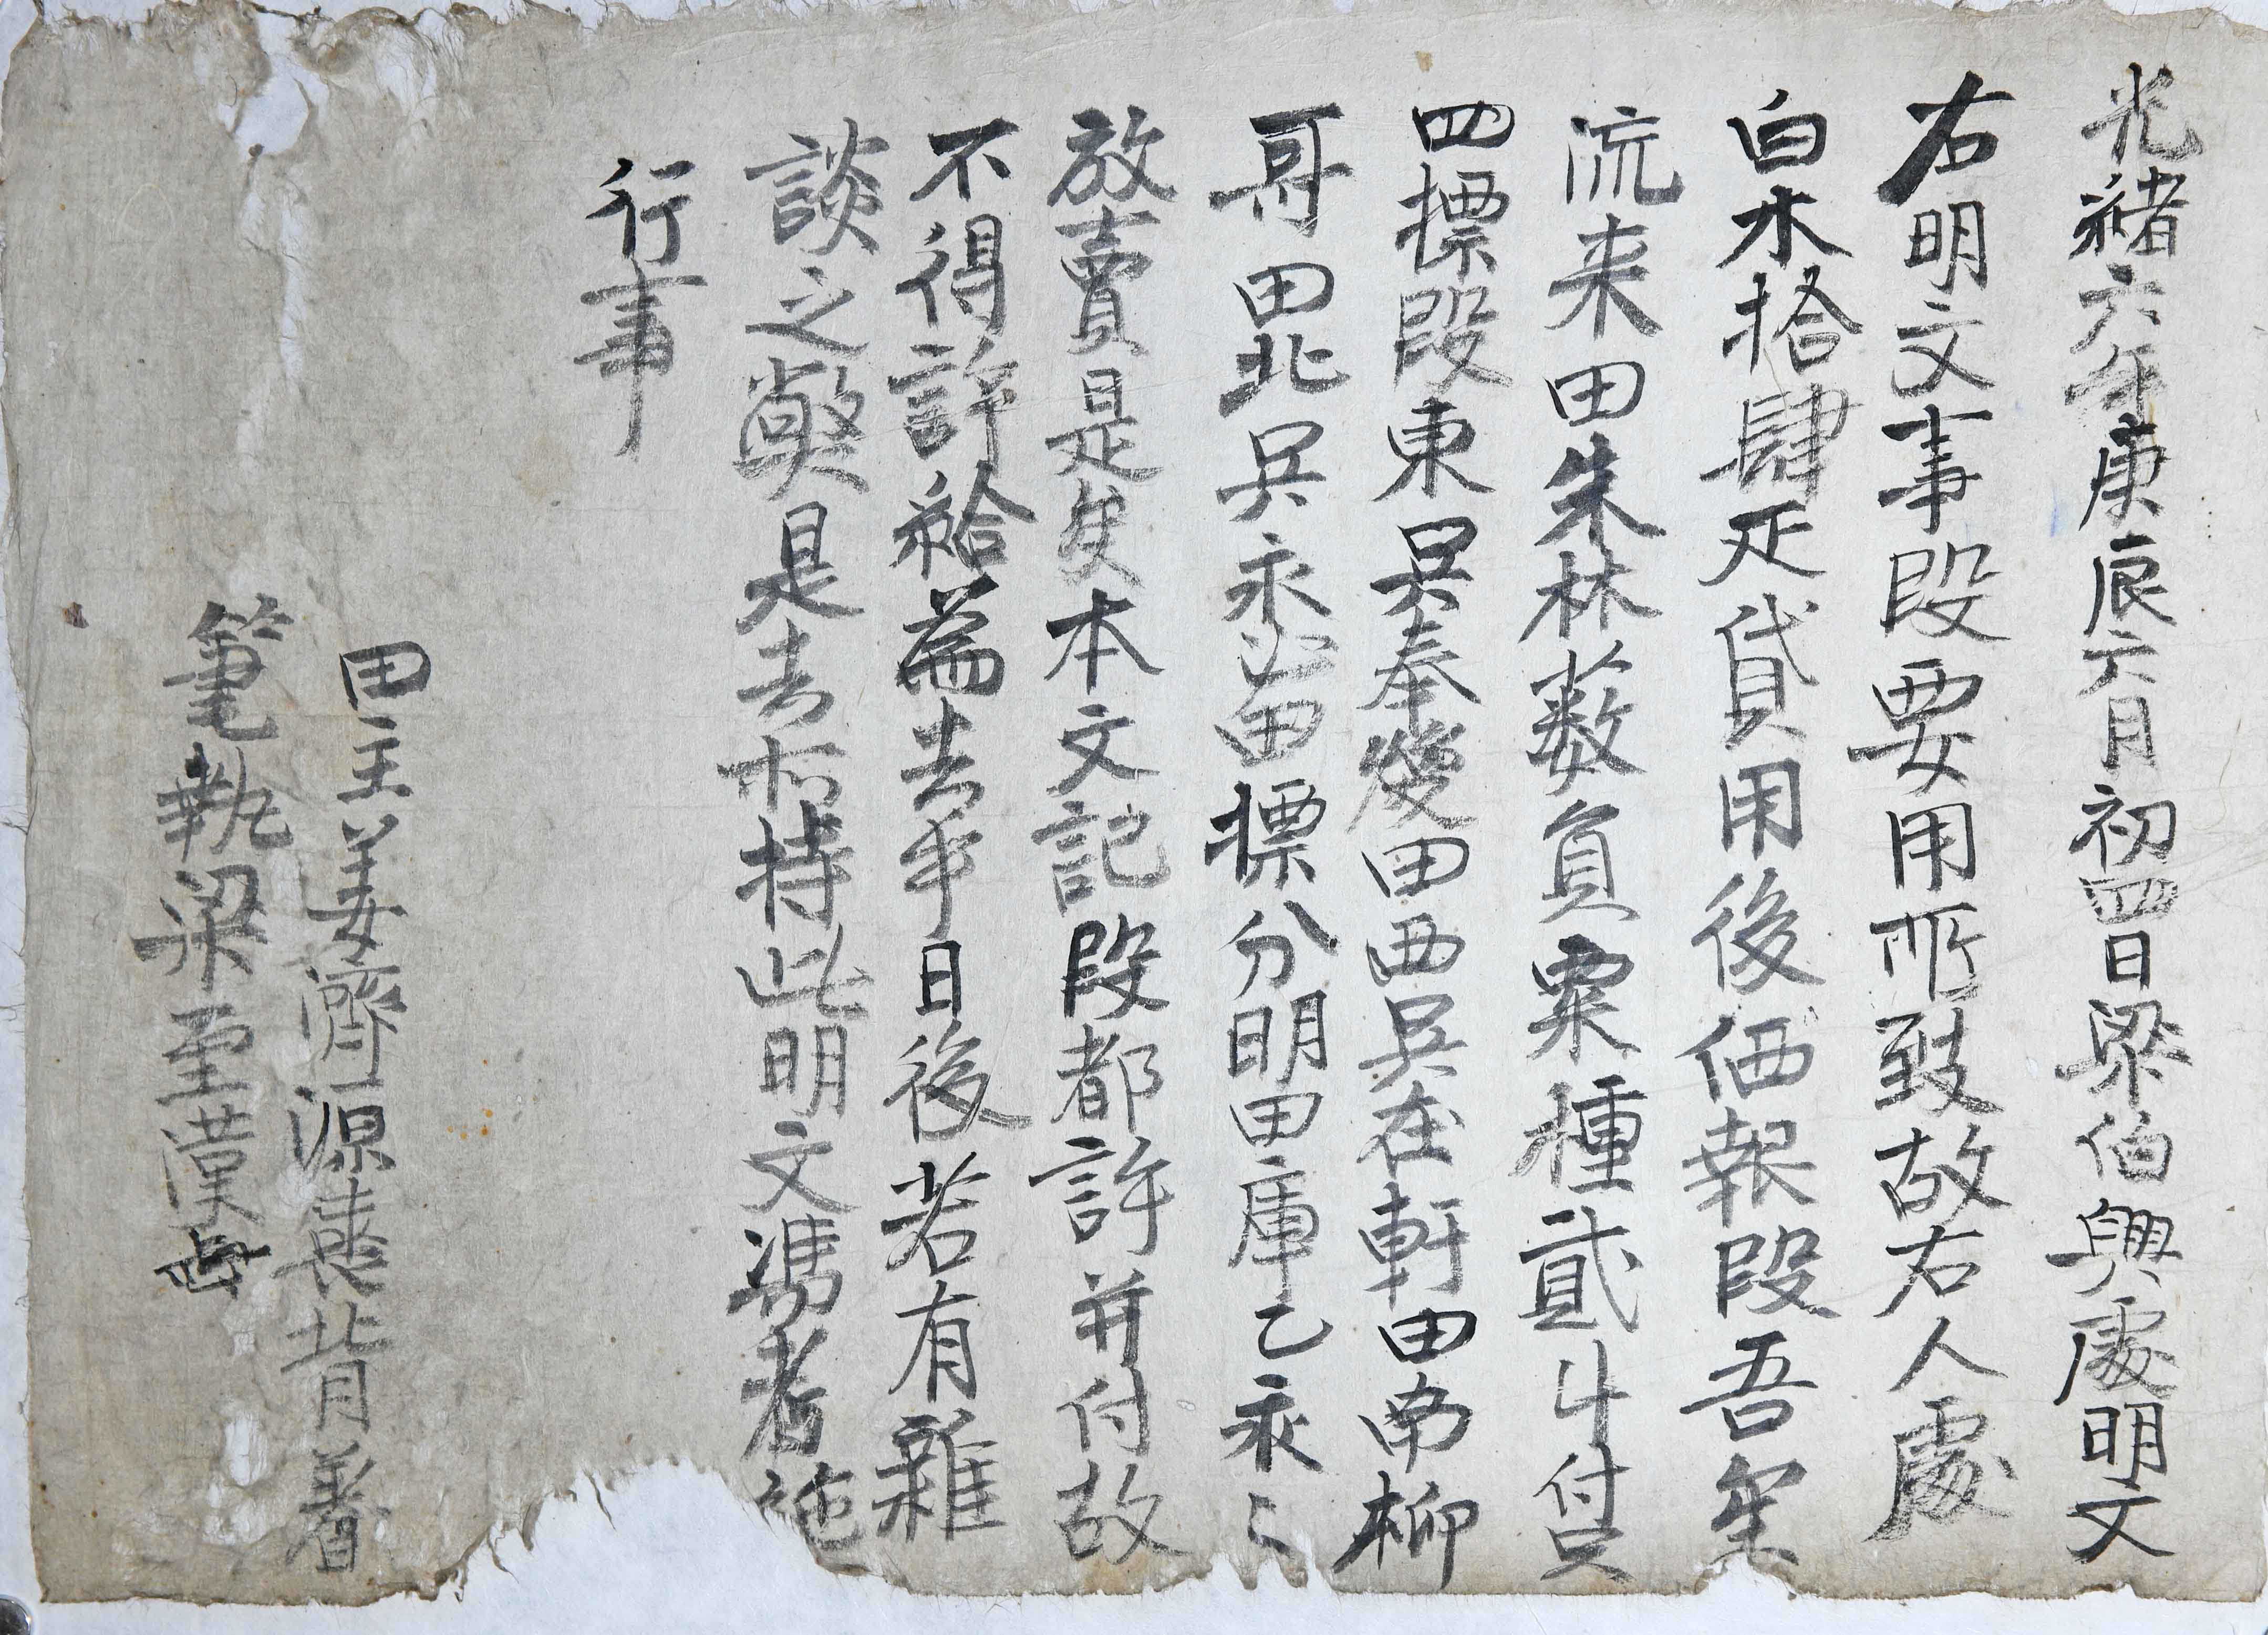 光緒六年庚辰六月初四日梁伯興處明文
右明文事段要用所致故右人處
白木拾肆疋貸用後価報段吾矣
流来田朱林藪員粟種貳斗付只
四標段東吳奉燮田西吳在軒田南柳
哥田北吳永必田標分明田庫乙永々
放賣是矣本文記段都許幷付故
不得許給為去乎日後若有雜
談之弊是去所持此明文憑考施
行事
田主姜濟源喪背着
筆執梁重漢